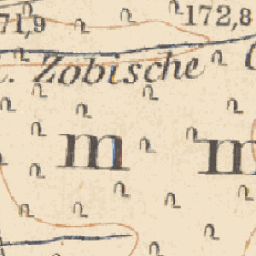 71,9 172,8
Zobische
m m